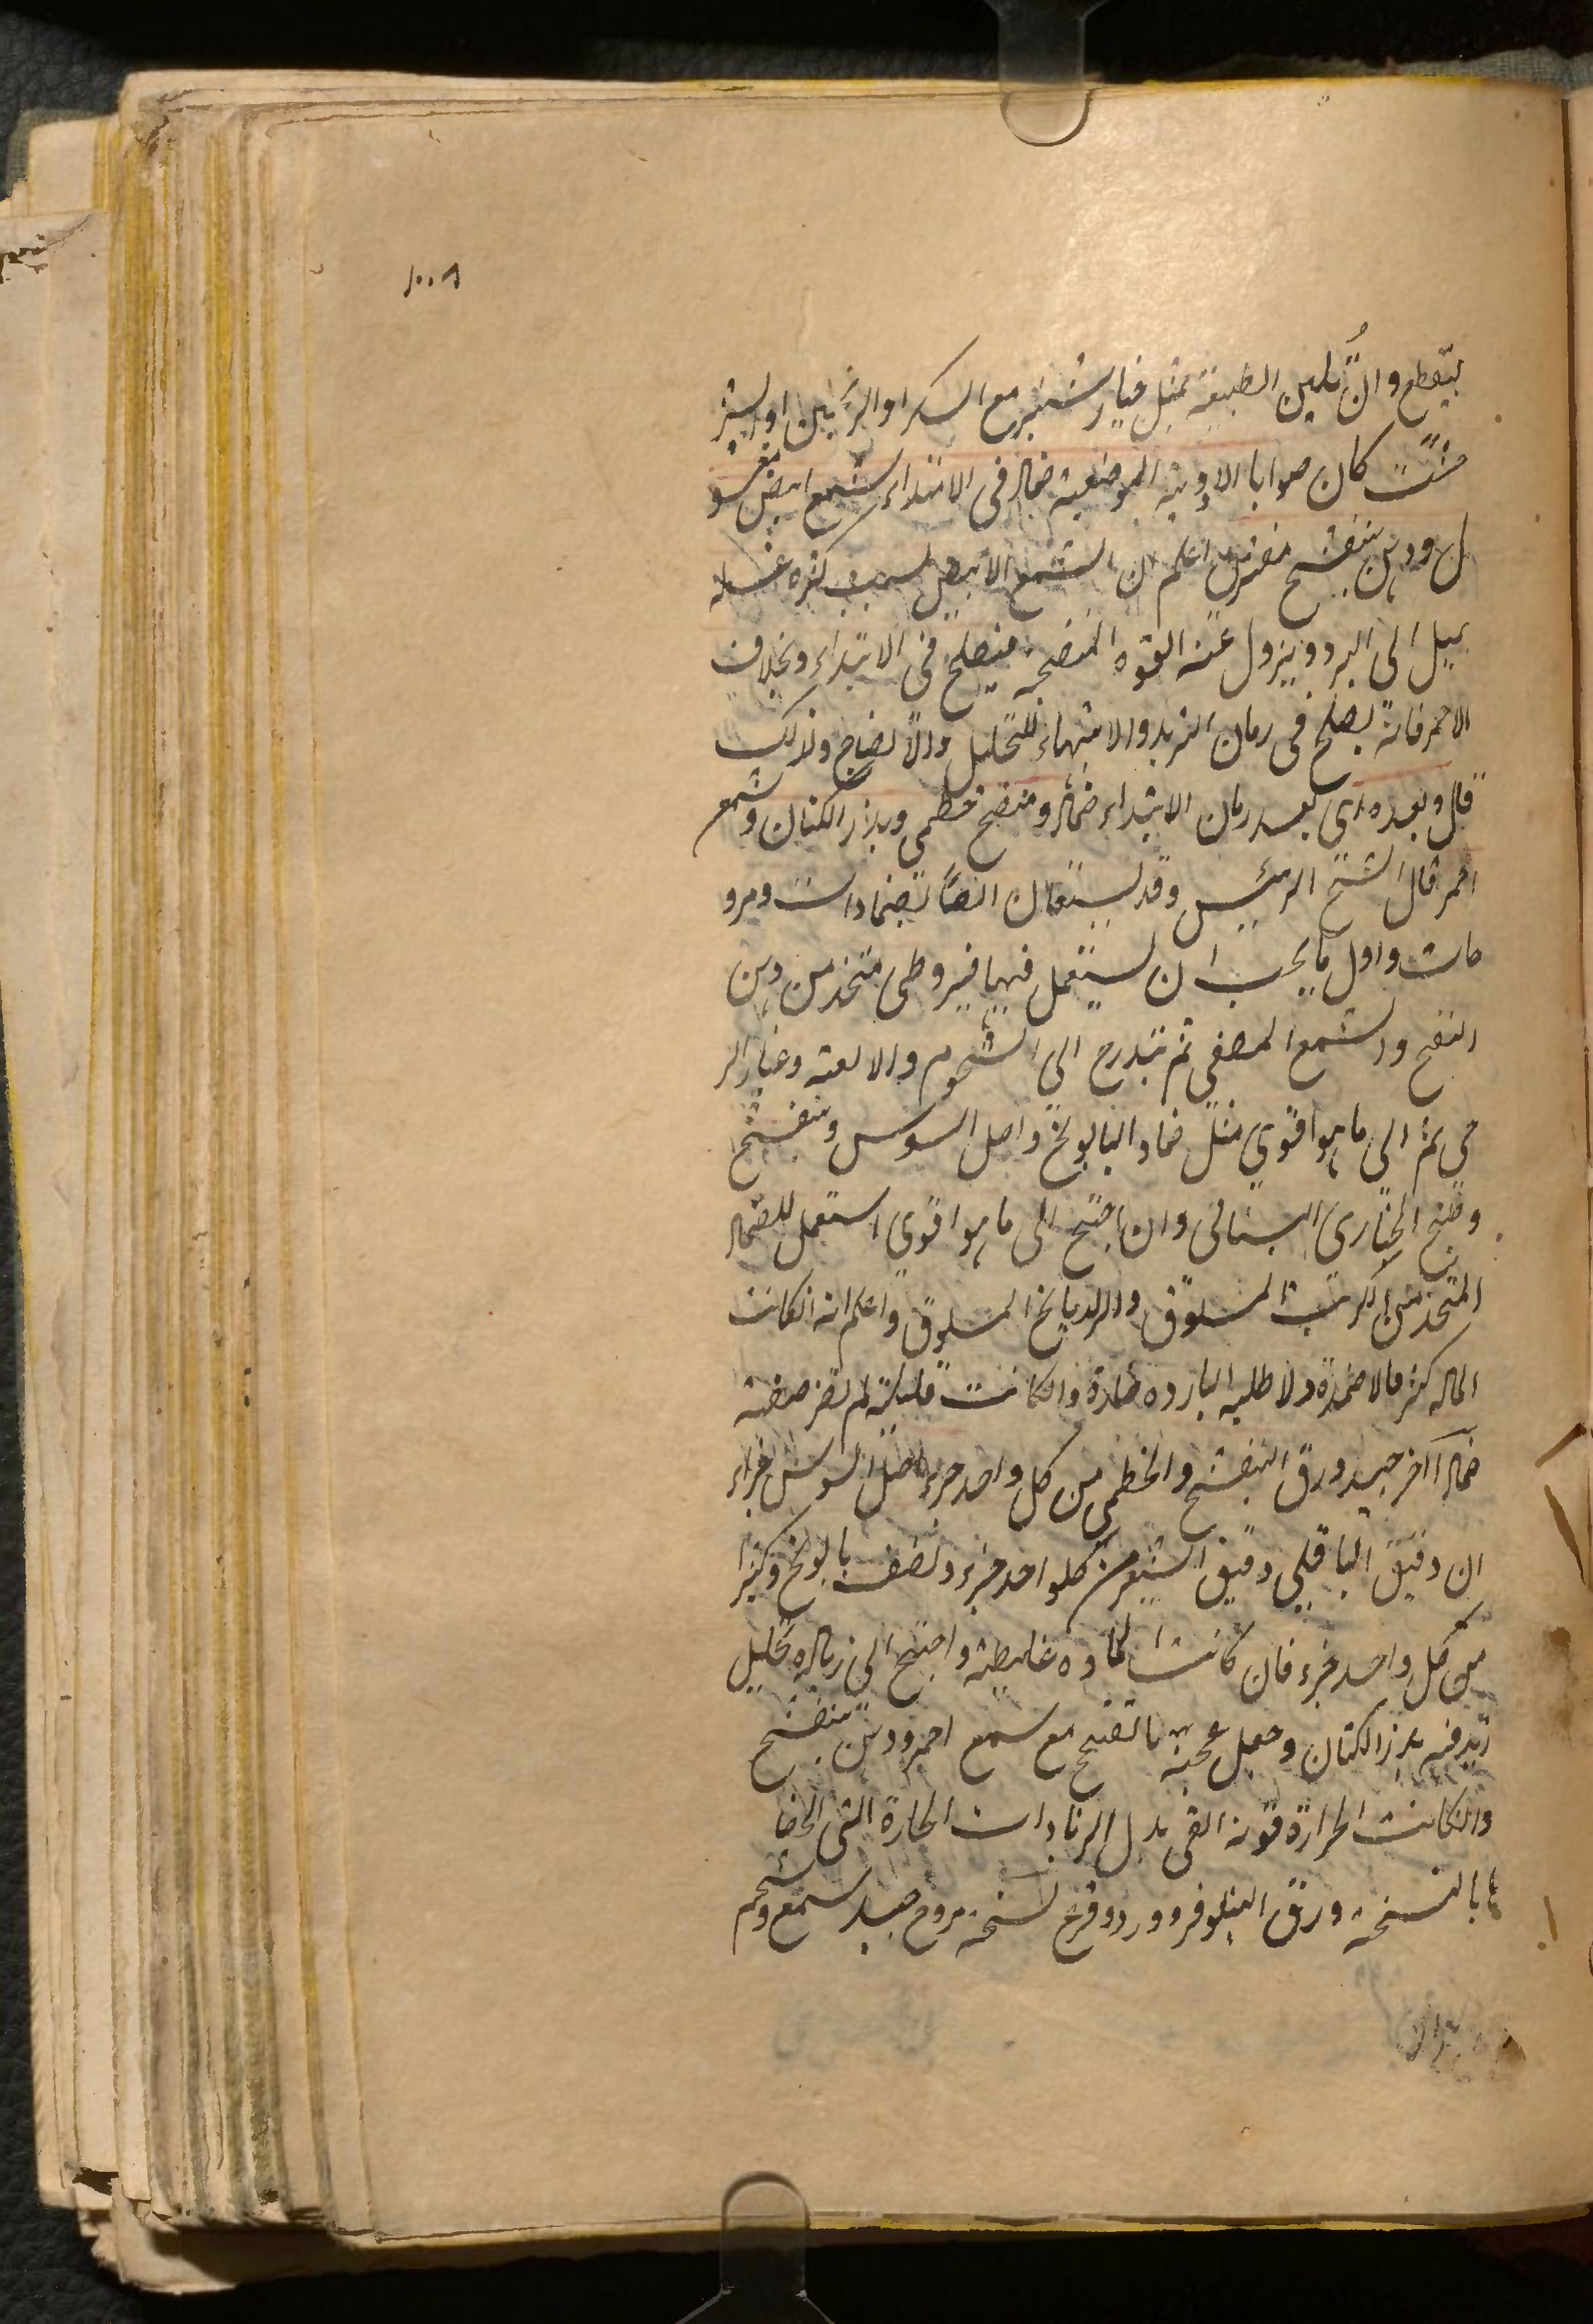 ١٠٠٨
ينقطع وان تليين الطبيعة بمثل خيار شنبر مع السكر او الترنجبين او الشير
خشت كان صوابا الادوية الموضعية ضماد فى الابتداء شمع ابيض مغسو
ل ودهن بنفسج مفتر اعلم ان الشمع الابيض لسبب كثرة غسله
يميل الى البرد ويزول عنه القوه المنضجه فيصلح فى الابتداء وبخلاف
الاحمر فانه يصلح فى زمان التزيد والانتهاء للتحليل والانضاج ولذلك
قال وبعده اى بعد زمان الابتداء ضماد ومنضج خطمى وبذر الكتان وشمع
احمر قال الشيخ الرئيس وقد يستعان ايضا بضمادات ومرو
خات واول ما يجب ان يستعمل فيها قيروطى متخذ من دهن
البنفسج والشمع المصفى ثم يتدرج الى الشحوم والالعبه وغبار الر
حى ثم الى ما هو اقوى مثل ضماد البابونج واصل السوس وبنفسج
وطبخ الخبازى البستانى وان احتيج الى ما هو اقوى استعمل للضماد
المتخذ من الكرنب المسلوق والرازيانج المسلوق واعلم انه ان كانت
الماده كثيره فالاضمدة والاطليه البارده ضارة وان كانت قليلة لم تضر صفة
ضماد آخر جيد ورق البنفسج والخطمى من كل واحد جزء اصل السوس جزاء
ان دقيق الباقلى دقيق الشعير من كلواحد جزء ونصف بابونج وكثيرا
من كل واحد جزء فان كانت الماده غليظة واحتيج الى زياده تحليل
زيد فيه بزر الكتان وجعل عجينه بالفختج مع شمع احمر ودهن بنفسج
وان كانت الحرارة قويه القى بدل الزيادات الحارة التى الحقنا
ها بالنسخه ورق النيلوفر وورد وقرع نسخه مروخ جيد شمع وشحم